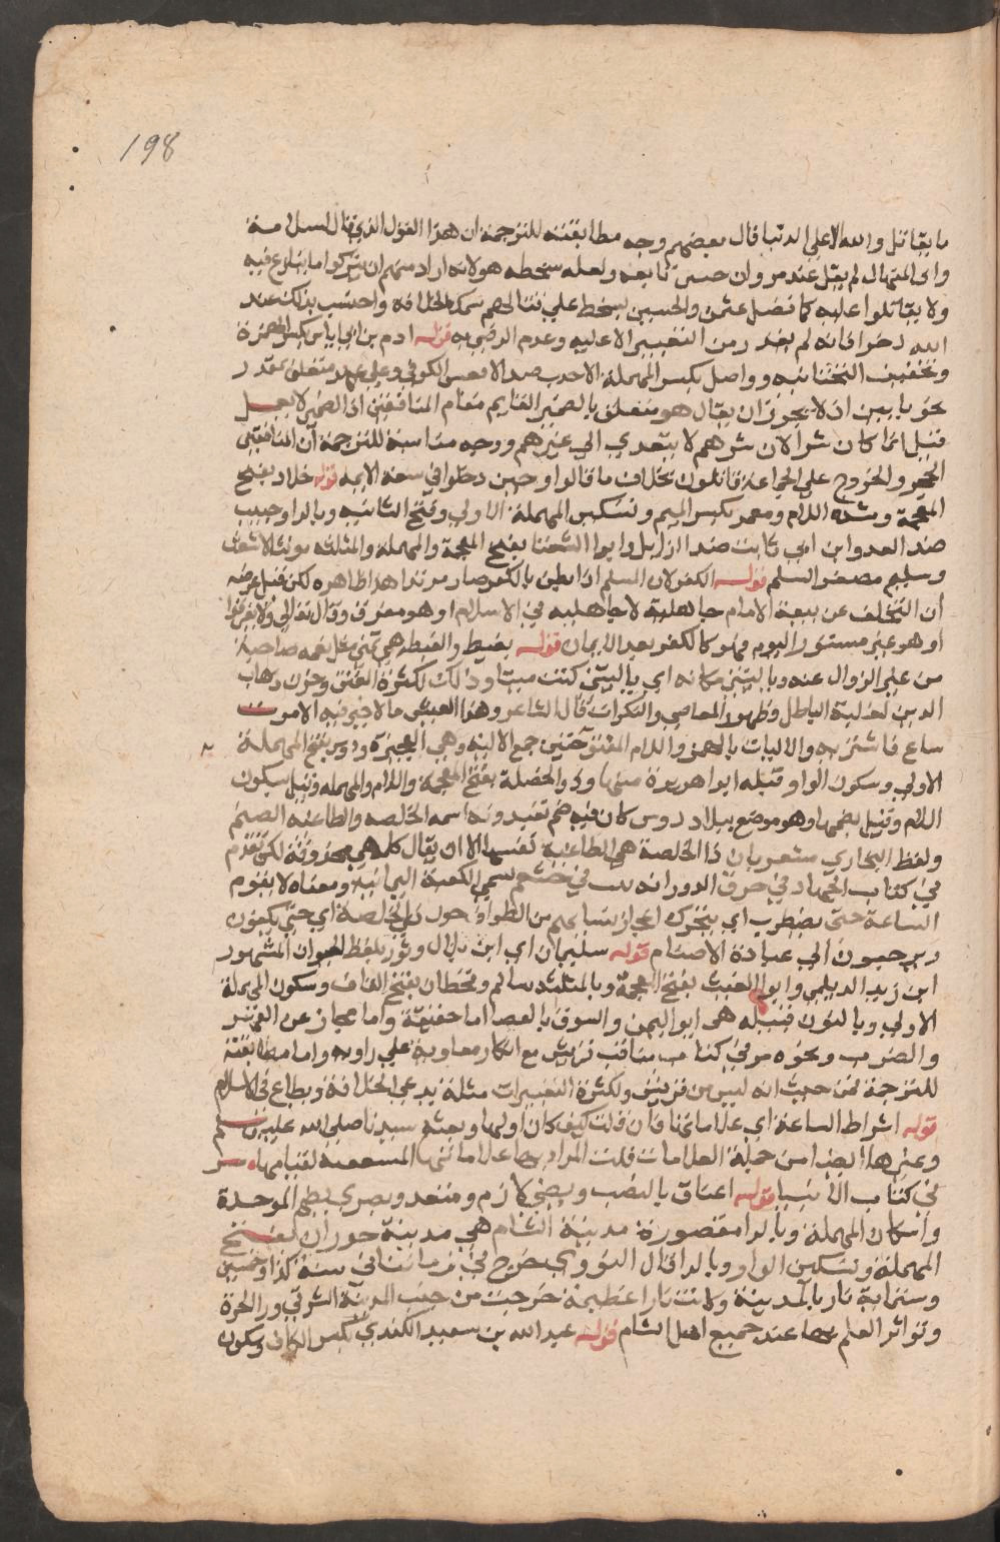 198
ما يقاتل والله الا علي الدنيا قال بعضهم وجه مطابقته للترجمة ان هذا القول الذي قال لسلامة
وابي المنهال لم يقل عند مروان حسن تابعه ولعله سخطه هو لانه اراد منهم ان يتركوا ما ينازع فيه
ولا يقاتلوا عليه كما فعل عثمن والحسين بسخط علي قتالهم بتمسك الخلافة واحتسب بذلك عند
الله ذخرا فانه لم يقدر من التغيير الا عليه وعدم الرضى به قوله ادم بن ابي اياس بكسر الهمزة
وتخفيف التحتانيه وواصل بكسر المهملة الاحدب ضد الاقعس الكوفي وعلي عهد متعلق بمقدر
نحو ناسين اذ لا يجوز ان يقال هو متعلق بالضمير القايم مقام المنافقين اذ الضمير لا يعمل
قيل انما كان شرا لان شرهم لا يتعدي الي غيرهم ووجه مناسبة للترجمة ان المنافقين
الجهر والخروج علي الجماعة قائلون بخلاف ما قالوا حين دخلوا في بيعة الايمة قوله خلاد بفتح
المعجمة وشدة اللام ومعمر بكسر الميم وتسكين المهملة الاولي وفتح الثانيه وبالراء وحبيب
ضد العدو ابن ابي ثابت ضد الزايل وابوا الشعثا بفتح المعجمة والمهملة والمثلثه مونث الاشعث
وسليم مصغر السلم قوله الكفر لان المسلم اذا بطن بالكفر صار مرتدا هذا ظاهره لكن قيل غرضه
ان التخلف عن بيعة الامام جاهلية لا جاهليه في الاسلام او هو معرف وقال تعالي ولا تفرقوا
او هو غير مستور اليوم فهو كالكفر بعد الايمان قوله يغبط والغبطه هي تمني مثل نعمه صاحبه
من غير الزوال عنه ويا ليتني مكانه اي يا ليتني كنت ميتا وذلك لكثرة الفتن وخوف ذهاب
الدين لغلبة الباطل وظهور المعاصي والنكرات قال الشاعر وهذا العيش ما لا خير فيه الا موت
يباع فاشتريه والاليات بالهمز واللام المفتوحتين جمع الالية وهي العجيزه ودوس بفتح المهملة
الاولي وسكون الواو قبيله ابوا هريرة منها وذو الخلصة بفتح المعجمة واللام والمهمله وقيل سكون
اللام وقيل بضمها وهو موضع ببلاد دوس كان فيه صنم تعبدونه اسمه الخلصه والطاغيه الصنم
ولفظ البخاري مشعر بان ذا الخلصة هي الطاغية نفسها الا ان يقال كلمة هي محذوفة لكن تقدم
في كتاب الجهاد في حرق الدور انه بيت في خثعم يسمي الكعبة اليمانية ومعناه لا يقوم
الساعة حتي يضطرب اي يتحرك اعجاز نسايهم من الطواف حول ذي الخلصة اي حتي يكفرن
ويرجعون الي عبادة الاصنام قوله سليمان اي ابن بلال وثور بلفظ الحيوان المشهور
ابن زيد الديلمي وابوا الغيث بفتح المعجمة وبالمثلثه سالم وقحطان بفتح القاف وسكون المهملة
الاولي وبالنون قبيله هي ابو اليمن والسوق بالعصا اما حقيقة واما مجاز عن القهر
والضرب ونحوه مر في كتاب مناقب قريش مع انكار معاوية علي راويه واما مطابقته
للترجمة فمن حيث انه ليس من قريش ولكثرة التغييرات مثله يدعي الخلافة ويطاع في الاسلام
قوله اشراط الساعة اي علاماتها فان قلت كيف كان اولها وبعثة سيدنا صلى الله عليه وسلم
وغيرها ايضا من جملة العلامات قلت المراد بها علاماتها المستعقبة لقيامها مر
في كتاب الانبيا قوله اعناق بالنصب ويضي لازم ومتعد وبصري بضم الموحدة
واسكان المهملة وبالرا مقصورة مدينة الشام هي مدينة حوران بفتح
المهملة وتسكين الواو وبالرا قال النووي خرج في زماننا في سنة كذا وخمسين
وستماية نار بالمدينة وكانت نارا عظيمة خرجت من جنب المدينة الشرقي ورا الحرة
وتواتر العلم بها عند جميع اهل الشام قوله عبد الله بن سعيد الكندي بكسر الكاف وسكون